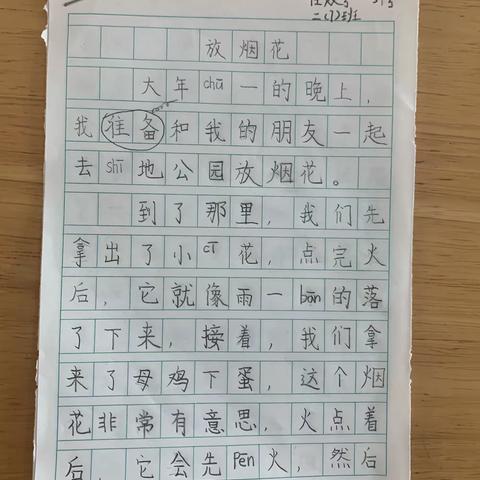 二(7)班
放烟花
大年chū一的晚上，
我准备和我的朋友一起
去shī地公园放烟花。
到了那里，我们先
拿出了小cī花，点完火
后，它就像雨一bān的落
了下来，接着，我们拿
来了母鸡下蛋，这个烟
花非常有意思，火点着
后，它会先Pēn火，然后